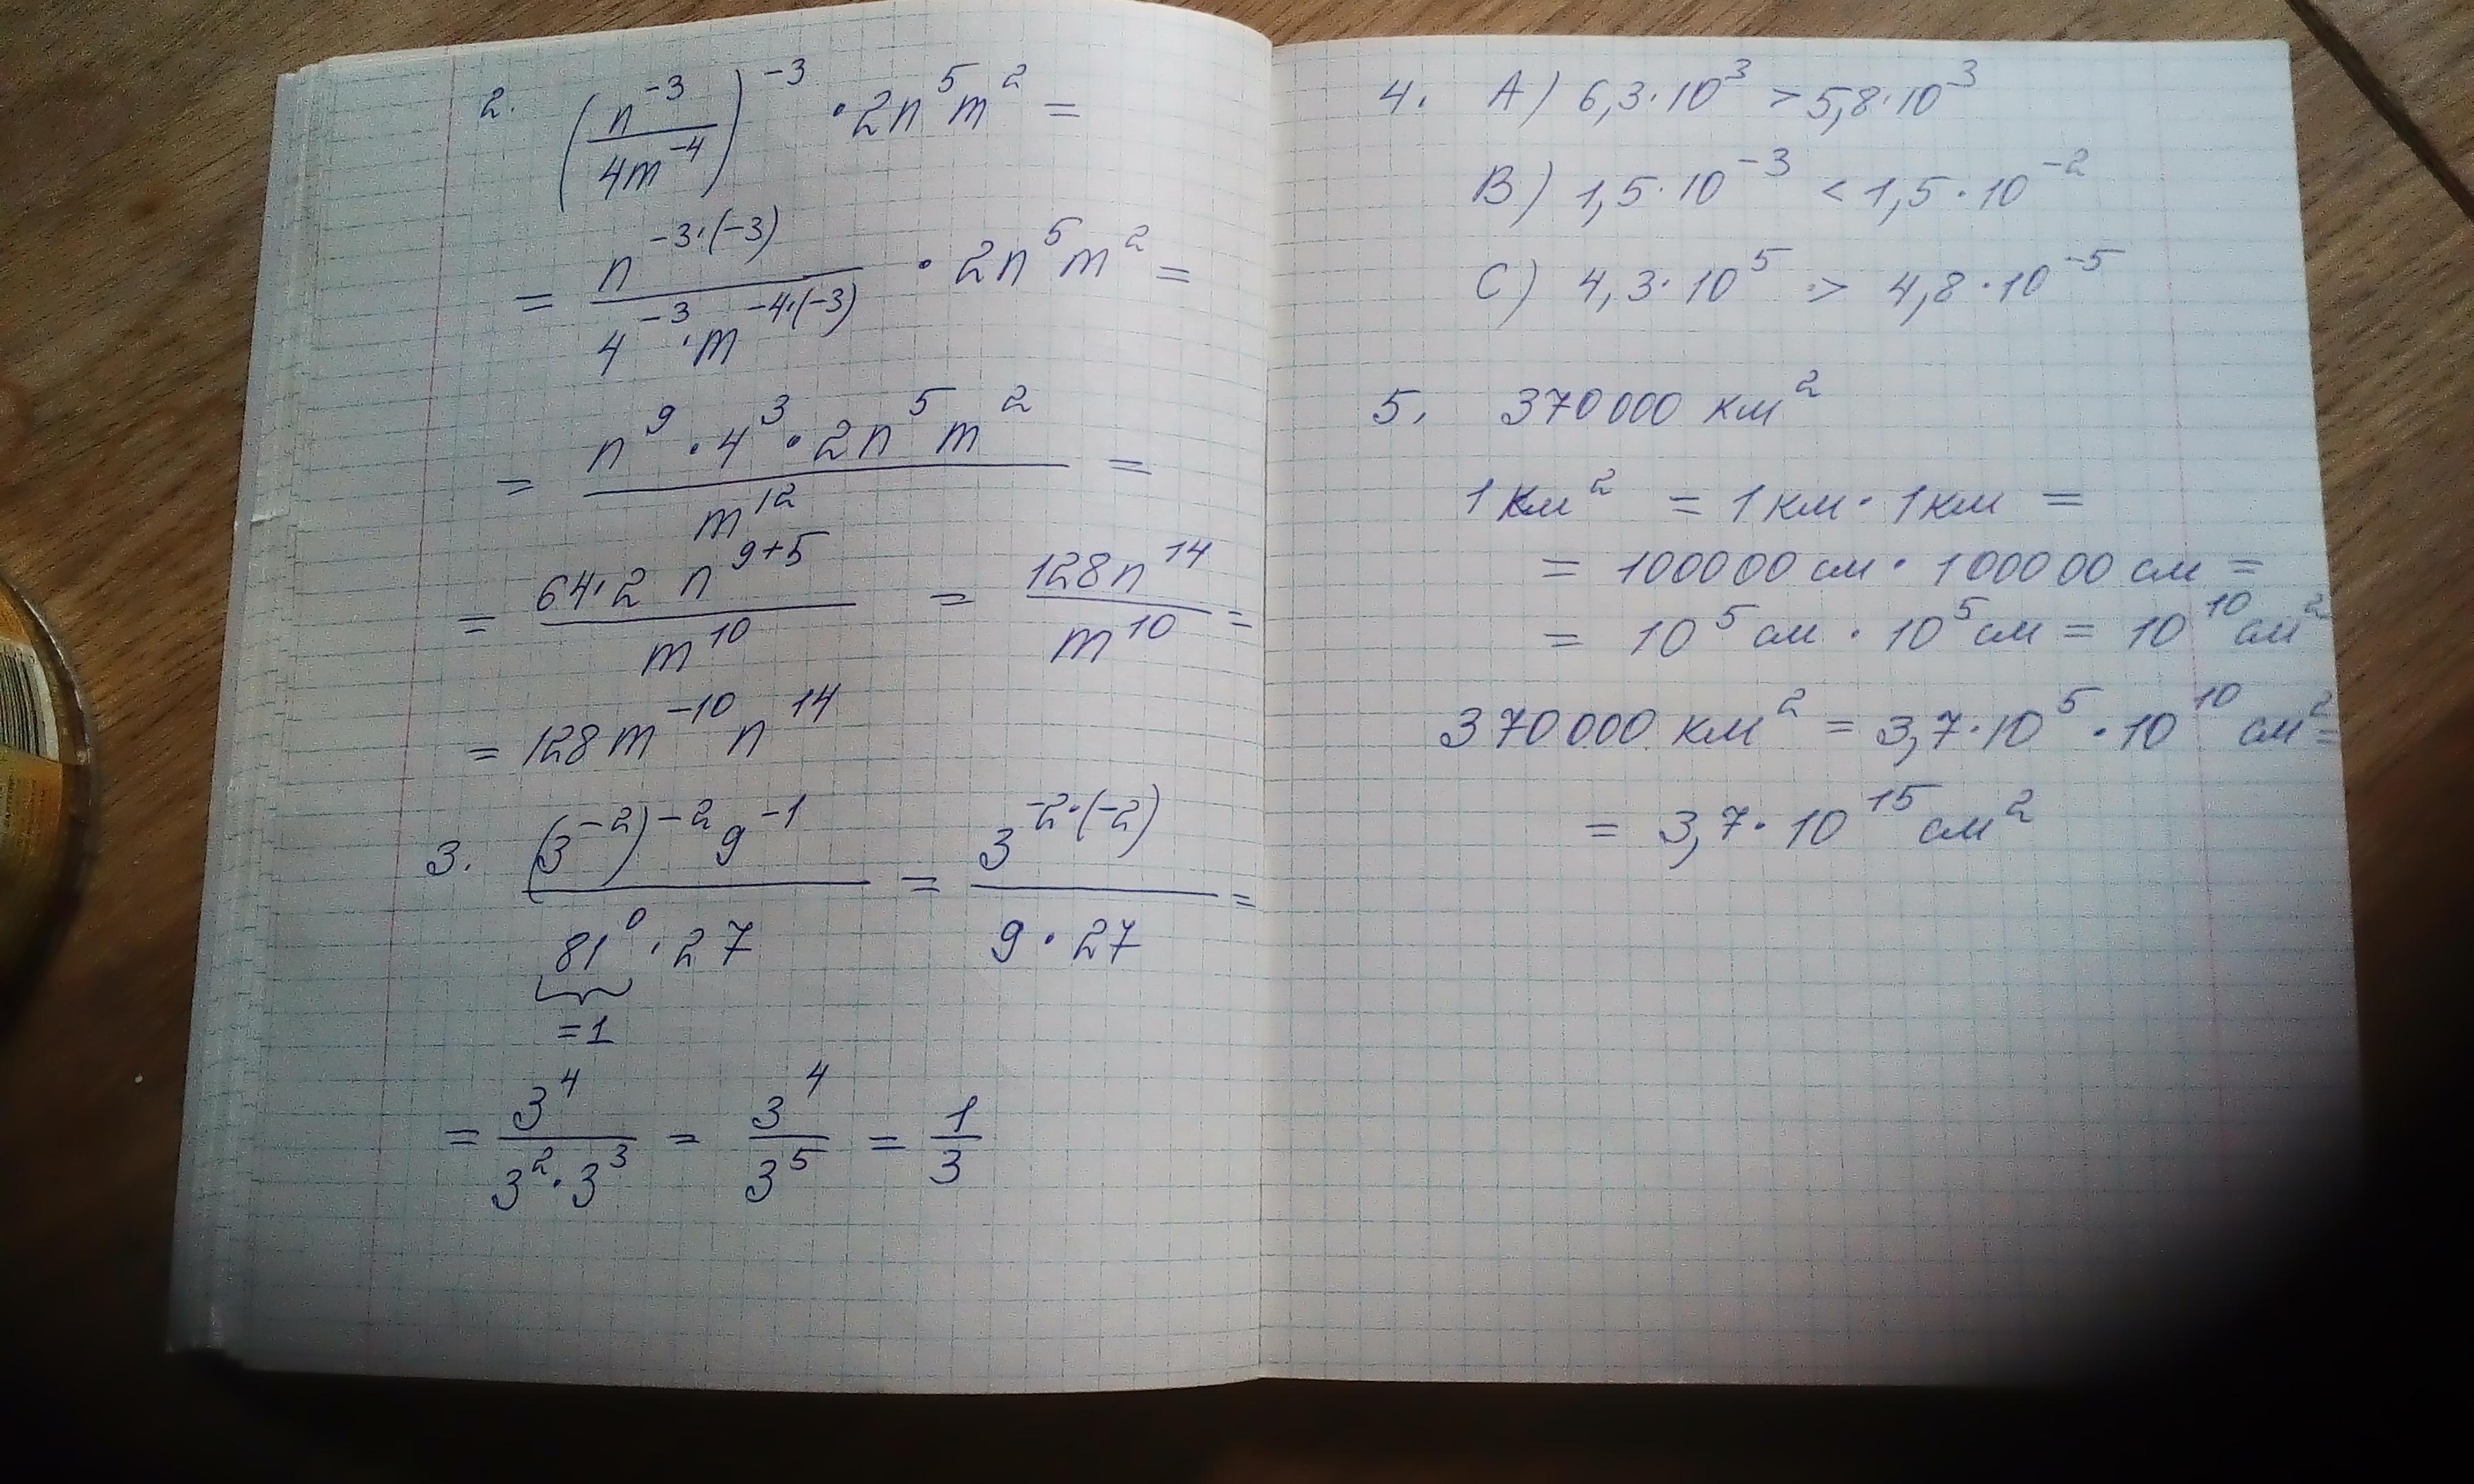 2. (n⁻³/4m⁻⁴)⁻³ · 2n⁵m² =
= n⁻³·⁽⁻³⁾/4⁻³·m⁻⁴·⁽⁻³⁾ · 2n⁵m² =
= n⁹·4³·2n⁵m²/m¹² =
= 64·2 n⁹⁺⁵/m¹⁰ = 128n¹⁴/m¹⁰ =
= 128m⁻¹⁰n¹⁴
3. (3⁻²)⁻²9⁻¹/81⁰·27 = 3⁻²·⁽⁻²⁾/9·27 =
=1
= 3⁴/3²·3³ = 3⁴/3⁵ = 1/3
4. A) 6,3·10³ > 5,8·10³
B) 1,5·10⁻³ < 1,5·10⁻²
C) 4,3·10⁵ > 4,8·10⁻⁵
5. 370000 км²
1 км² = 1 км · 1 км =
= 100000 см · 100000 см =
= 10⁵ см · 10⁵ см = 10¹⁰ см²
370000 км² = 3,7·10⁵·10¹⁰ см² =
= 3,7·10¹⁵ см²